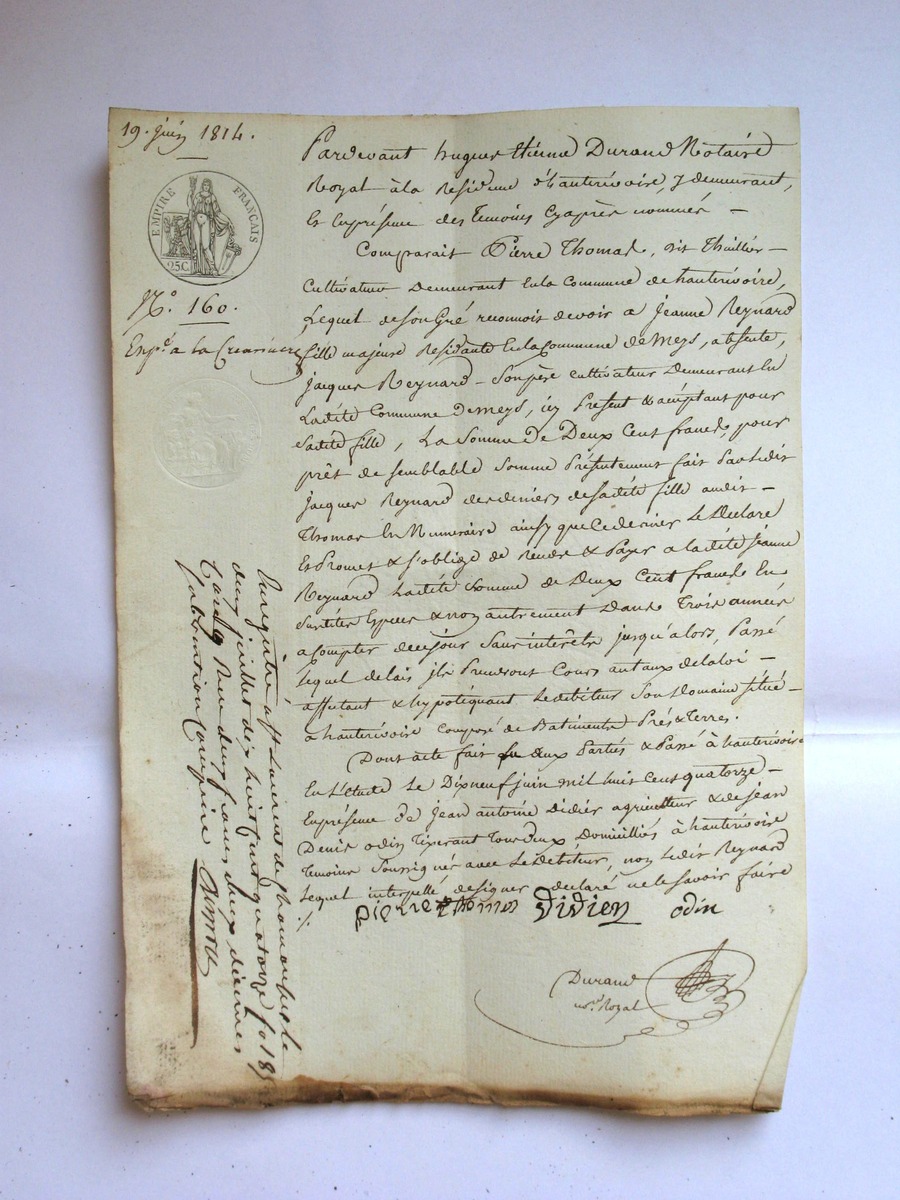 19. juin 1814.
EMPIRE FRANÇAIS
25C
N.° 160.
Exp.é a la Creanciere
Pardevant hugues Etienne Durand Notaire
Royal à la Residence d'hauterivoire, y demeurant,
Et En présence des Temoins Cy après nommés —
Comparait Pierre Thomas, dit Thillier —
Cultivateur Demeurant En la Commune de hauterivoire,
Lequel de son Gré reconnoit devoir a Jeanne Reynard
fille majeure Residante En la Commune de Meys, absente,
Jacques Reynard — Son père cultivateur Demeurant En
Ladite Commune de Meys, icy Présent & acceptant pour
Sadite fille, La Somme de Deux Cent francs, pour
prêt de semblable Somme Présentement fait Par ledit
Jacques Reynard des deniers de Sadite fille audit —
Thomas En Numeraire ainsy que Ce dernier Le Déclare
Et Promet & s'oblige de Rendre & Payer a la dite Jeanne
Reynard Ladite Somme de Deux Cent francs En
Susdites Especes & non autrement Dans Trois années
a Compter de ce jour Sans intérêts jusqu'alors, Passé
lequel delais ils Prendront Cours au taux de la loi —
affectant & hypotéquant Le debiteur Son Domaine Situé —
a hauterivoire Composé de Batiments Prés & Terres.
Dont acte fait lu aux Parties & Passé à hauterivoire
En L'Etude Le Dix neuf juin mil huit Cent quatorze —
En présence de Jean antoine Didier agriculteur & de Jean
Denis odin Tixerant Tous deux Domiciliés à hauterivoire
Temoins Soussignés avec Le debiteur, non Ledit Reynard
Lequel interpellé de signer a déclaré ne le savoir faire
Pierre thomas Didier odin
Durand
not.re Royal
Enregistré a St Laurent de Chamousset le
deux juillet dix huit cent quatorze fo 18
Reçu deux francs deux dixiemes
Subvention Comprise